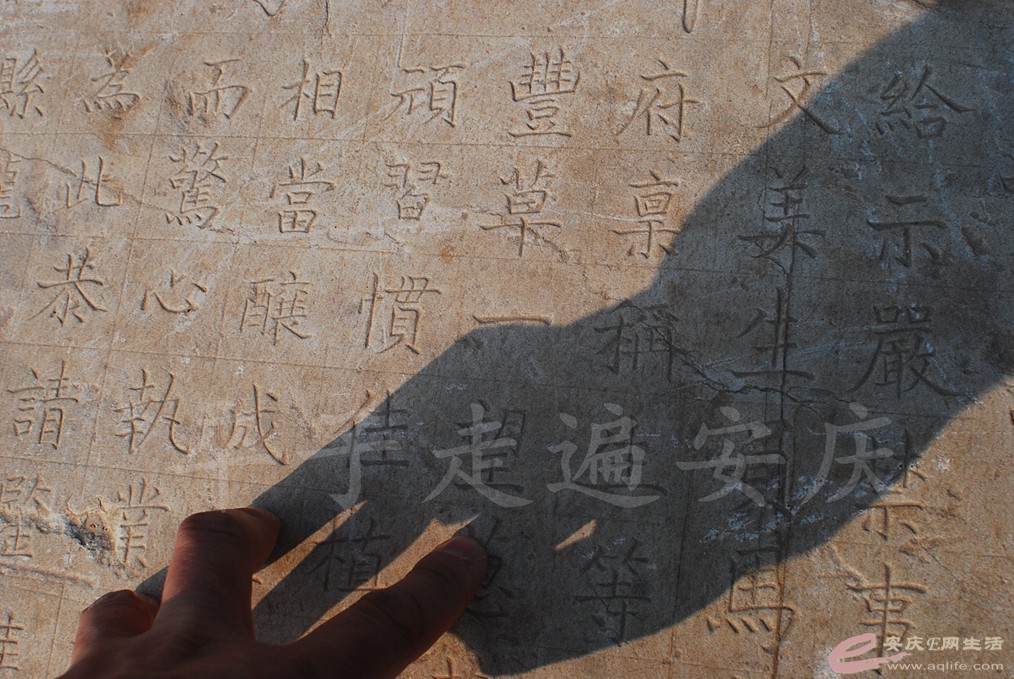 給示嚴禁事
文美生馬
府稟稱等
豐草一望
頑習慣佳植
相當釀成
而驚心執業
為此恭請
縣
子走遍安庆
安庆E网生活
www.aqlife.com